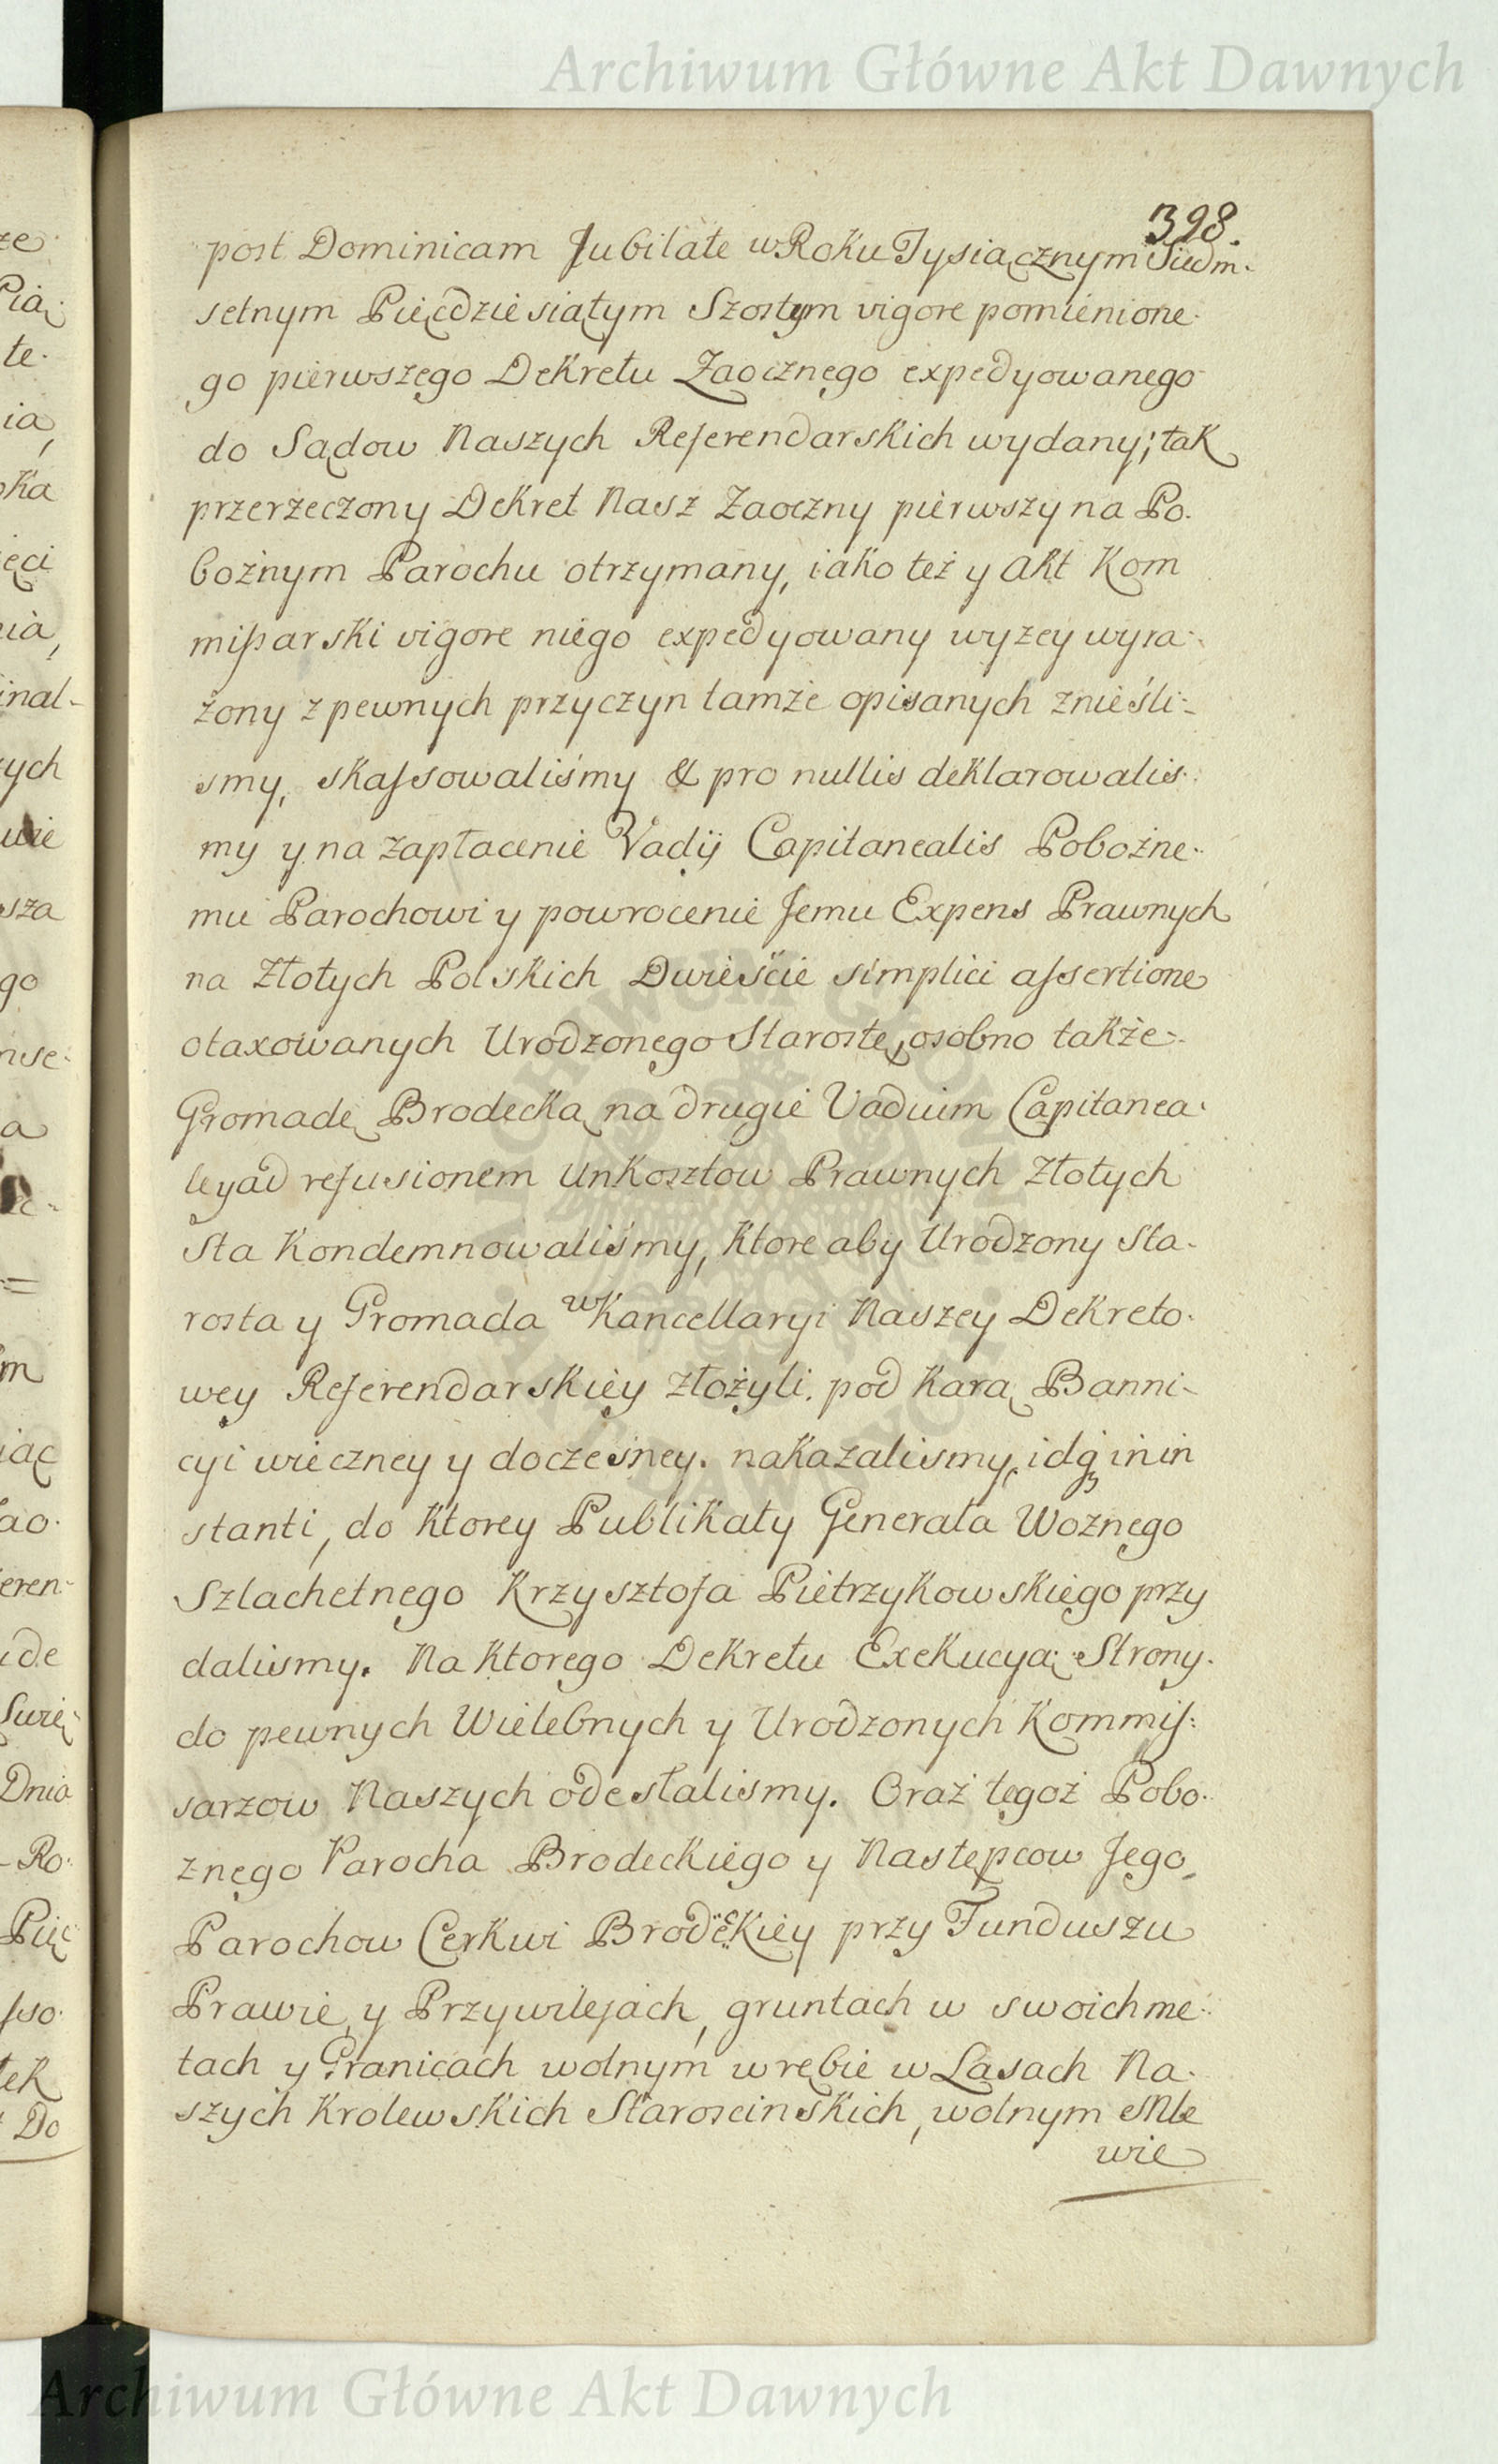 Archiwum Główne Akt Dawnych
398.
post Dominicam Jubilate w Roku Tysiącznym Siedm-
setnym Pięcdziesiątym Szostym vigore pomienione-
go pierwszego Dekretu Zaocznego expedyowanego
do Sądow Naszych Referendarskich wydany; tak
przerzeczony Dekret Nasz Zaoczny pierwszy na Po-
bożnym Parochu otrzymany, iako też y Akt Kom
mißarski vigore niego expedyowany wyżey wyra-
żony z pewnych przyczyn tamże opisanych znieśli-
smy, skassowaliśmy & pro nullis deklarowalis-
my y na zapłacenie Vadij Capitanealis Pobożne-
mu Parochowi y powrocenie Jemu Expens Prawnych
na Złotych Polskich Dwieście simplici assertione
otaxowanych Urodzonego Starostę, osobno także
Gromadę Brodecką na drugie Vadium Capitanea-
le y ad refusionem Unkosztow Prawnych Złotych
Sta Kondemnowaliśmy, Ktore aby Urodzony Sta-
rosta y Gromada w Kancellaryi Naszey Dekreto-
wey Referendarskiey złożyli. pod Karą Banni-
cyi wieczney y doczesney. nakazalismy, idq in in
stanti, do Ktorey Publikaty Generała Woznego
Szlachetnego Krzysztofa Pietrzykowskiego przy
dalismy. Na Ktorego Dekretu Exekucyą Strony
do pewnych Wielebnych y Urodzonych Kommis-
sarzow Naszych odestalismy. Oraz tegoż Pobo-
znego Parocha Brodeckiego y Następcow Jego
Parochow Cerkwi Brodeckiey przy Funduszu
Prawie, y Przywilejach, gruntach w swoich me-
tach y Granicach wolnym wrębie w Lasach Na-
szych Krolewskich Staroscinskich, wolnym Mle
wie
Archiwum Główne Akt Dawnych